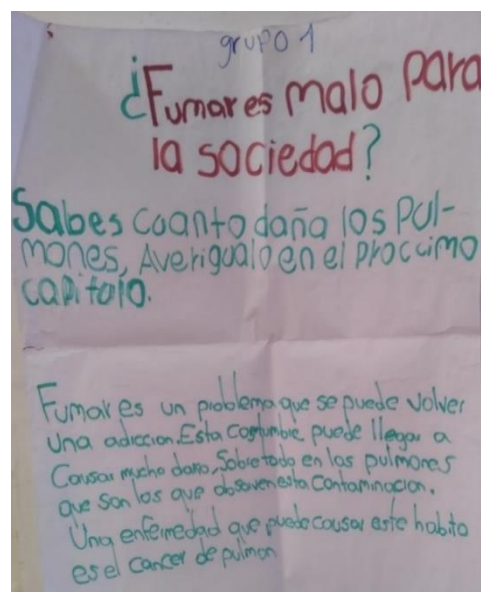 grupo 1
¿Fumar es malo para
la sociedad?
Sabes cuanto daña los Pul-
mones, Averigualo en el proccimo
capitolo.
Fumar es un problema que se puede volver
una adiccion. Esta costumbre puede llegar a
Causar mucho daño, Sobre todo en los pulmones
que son los que absorven esta contaminacion.
Una enfermedad que puede causar este habito
es el cancer de pulmon